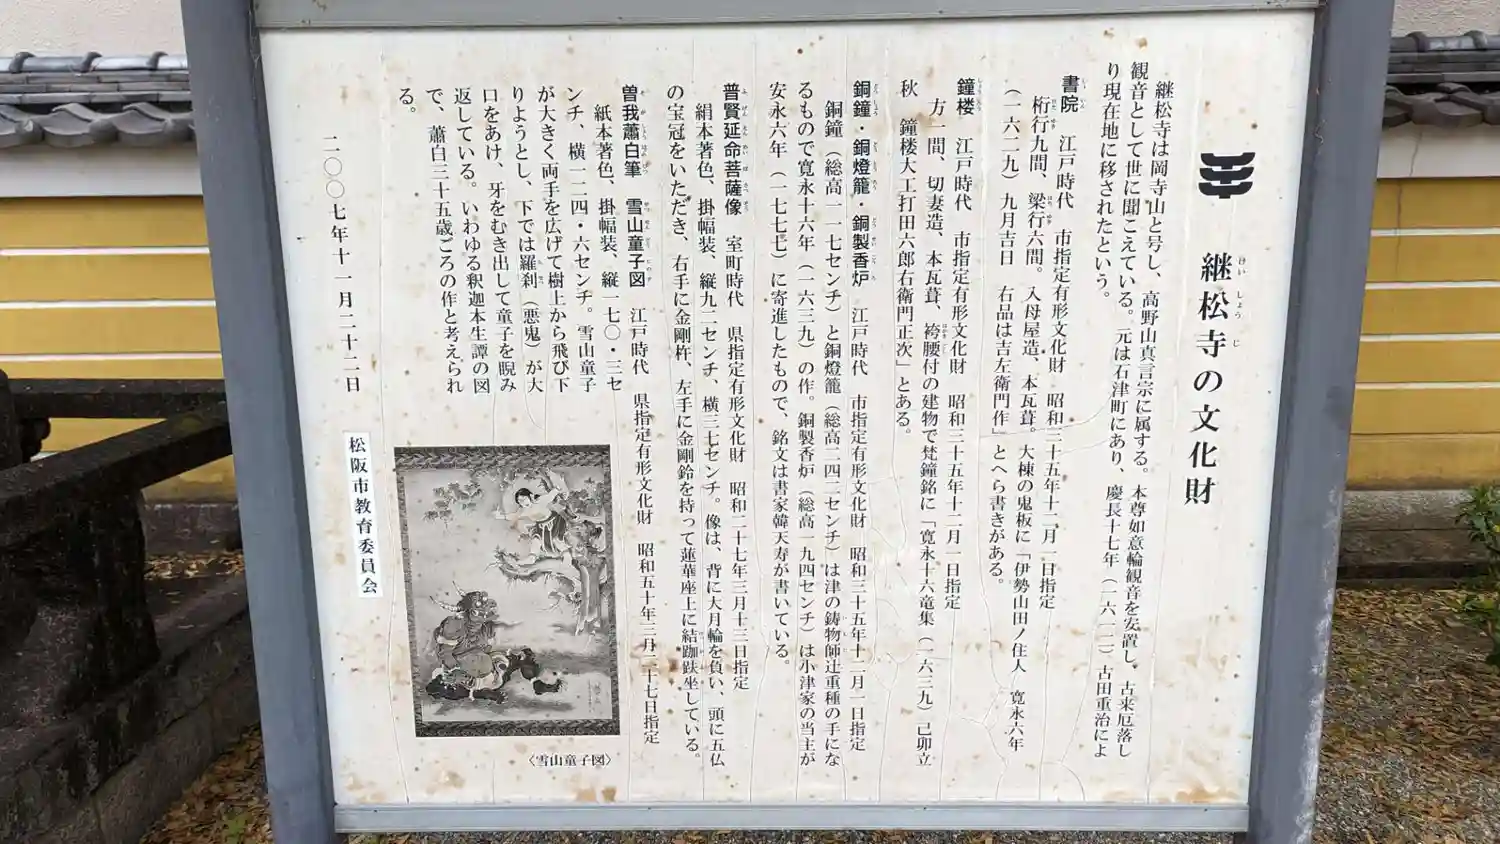 継松寺の文化財
けいしょうじ
継松寺は岡寺山と号し、高野山真言宗に属する。本尊如意輪観音を安置し、古来厄落し
観音として世に聞こえている。元は石津町にあり、慶長十七年（一六一二）古田重治によ
り現在地に移されたという。
書院　江戸時代　市指定有形文化財　昭和三十五年十二月一日指定
桁行九間、梁行六間。入母屋造、本瓦葺。大棟の鬼板に「伊勢山田ノ住人　寛永六年
（一六二九）九月吉日　右品は吉左衛門作」とへら書きがある。
鐘楼　江戸時代　市指定有形文化財　昭和三十五年十二月一日指定
方一間、切妻造、本瓦葺、袴腰付の建物で梵鐘銘に「寛永十六竜集（一六三九）己卯立
秋　鐘楼大工打田六郎右衛門正次」とある。
銅鐘・銅燈籠・銅製香炉　江戸時代　市指定有形文化財　昭和三十五年十二月一日指定
銅鐘（総高一一七センチ）と銅燈籠（総高二四二センチ）は津の鋳物師辻重種の手にな
るもので寛永十六年（一六三九）の作。銅製香炉（総高一九四センチ）は小津家の当主が
安永六年（一七七七）に寄進したもので、銘文は書家韓天寿が書いている。
普賢延命菩薩像　室町時代　県指定有形文化財　昭和二十七年三月十三日指定
絹本著色、掛幅装、縦九二センチ、横三七センチ。像は、背に大月輪を負い、頭に五仏
の宝冠をいただき、右手に金剛杵、左手に金剛鈴を持って蓮華座上に結跏趺坐している。
曽我蕭白筆　雪山童子図　江戸時代　県指定有形文化財　昭和五十年三月二十七日指定
紙本著色、掛幅装、縦一七〇・三セ
ンチ、横一二四・六センチ。雪山童子
が大きく両手を広げて樹上から飛び下
りようとし、下では羅刹（悪鬼）が大
口をあけ、牙をむき出して童子を睨み
返している。いわゆる釈迦本生譚の図
で、蕭白三十五歳ごろの作と考えられ
る。
〈雪山童子図〉
二〇〇七年十一月二十二日
松阪市教育委員会